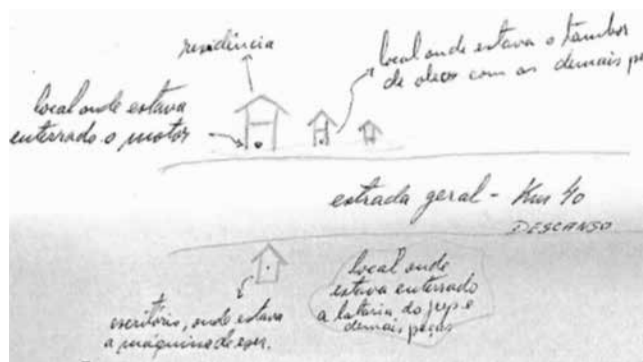 residência
local onde estava o tambor
de oleos com as demais pe
local onde estava
enterrado o motor
estrada geral - Km 40
DESCANSO
local onde
estava enterrado
a lataria do jeep e
demais peças
escritório, onde estava
a máquina de escr.